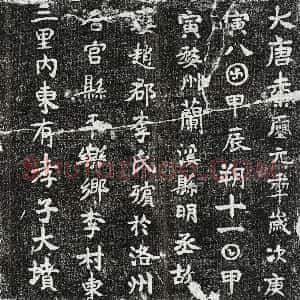 大唐元𠡦歲次庚
寅八𠥱甲辰朔十一𡆠甲
寅婺州蘭溪縣明丞故
妻趙郡李氏殯於洛州
合官縣平樂鄉李村東
三里內東有孝子大墳